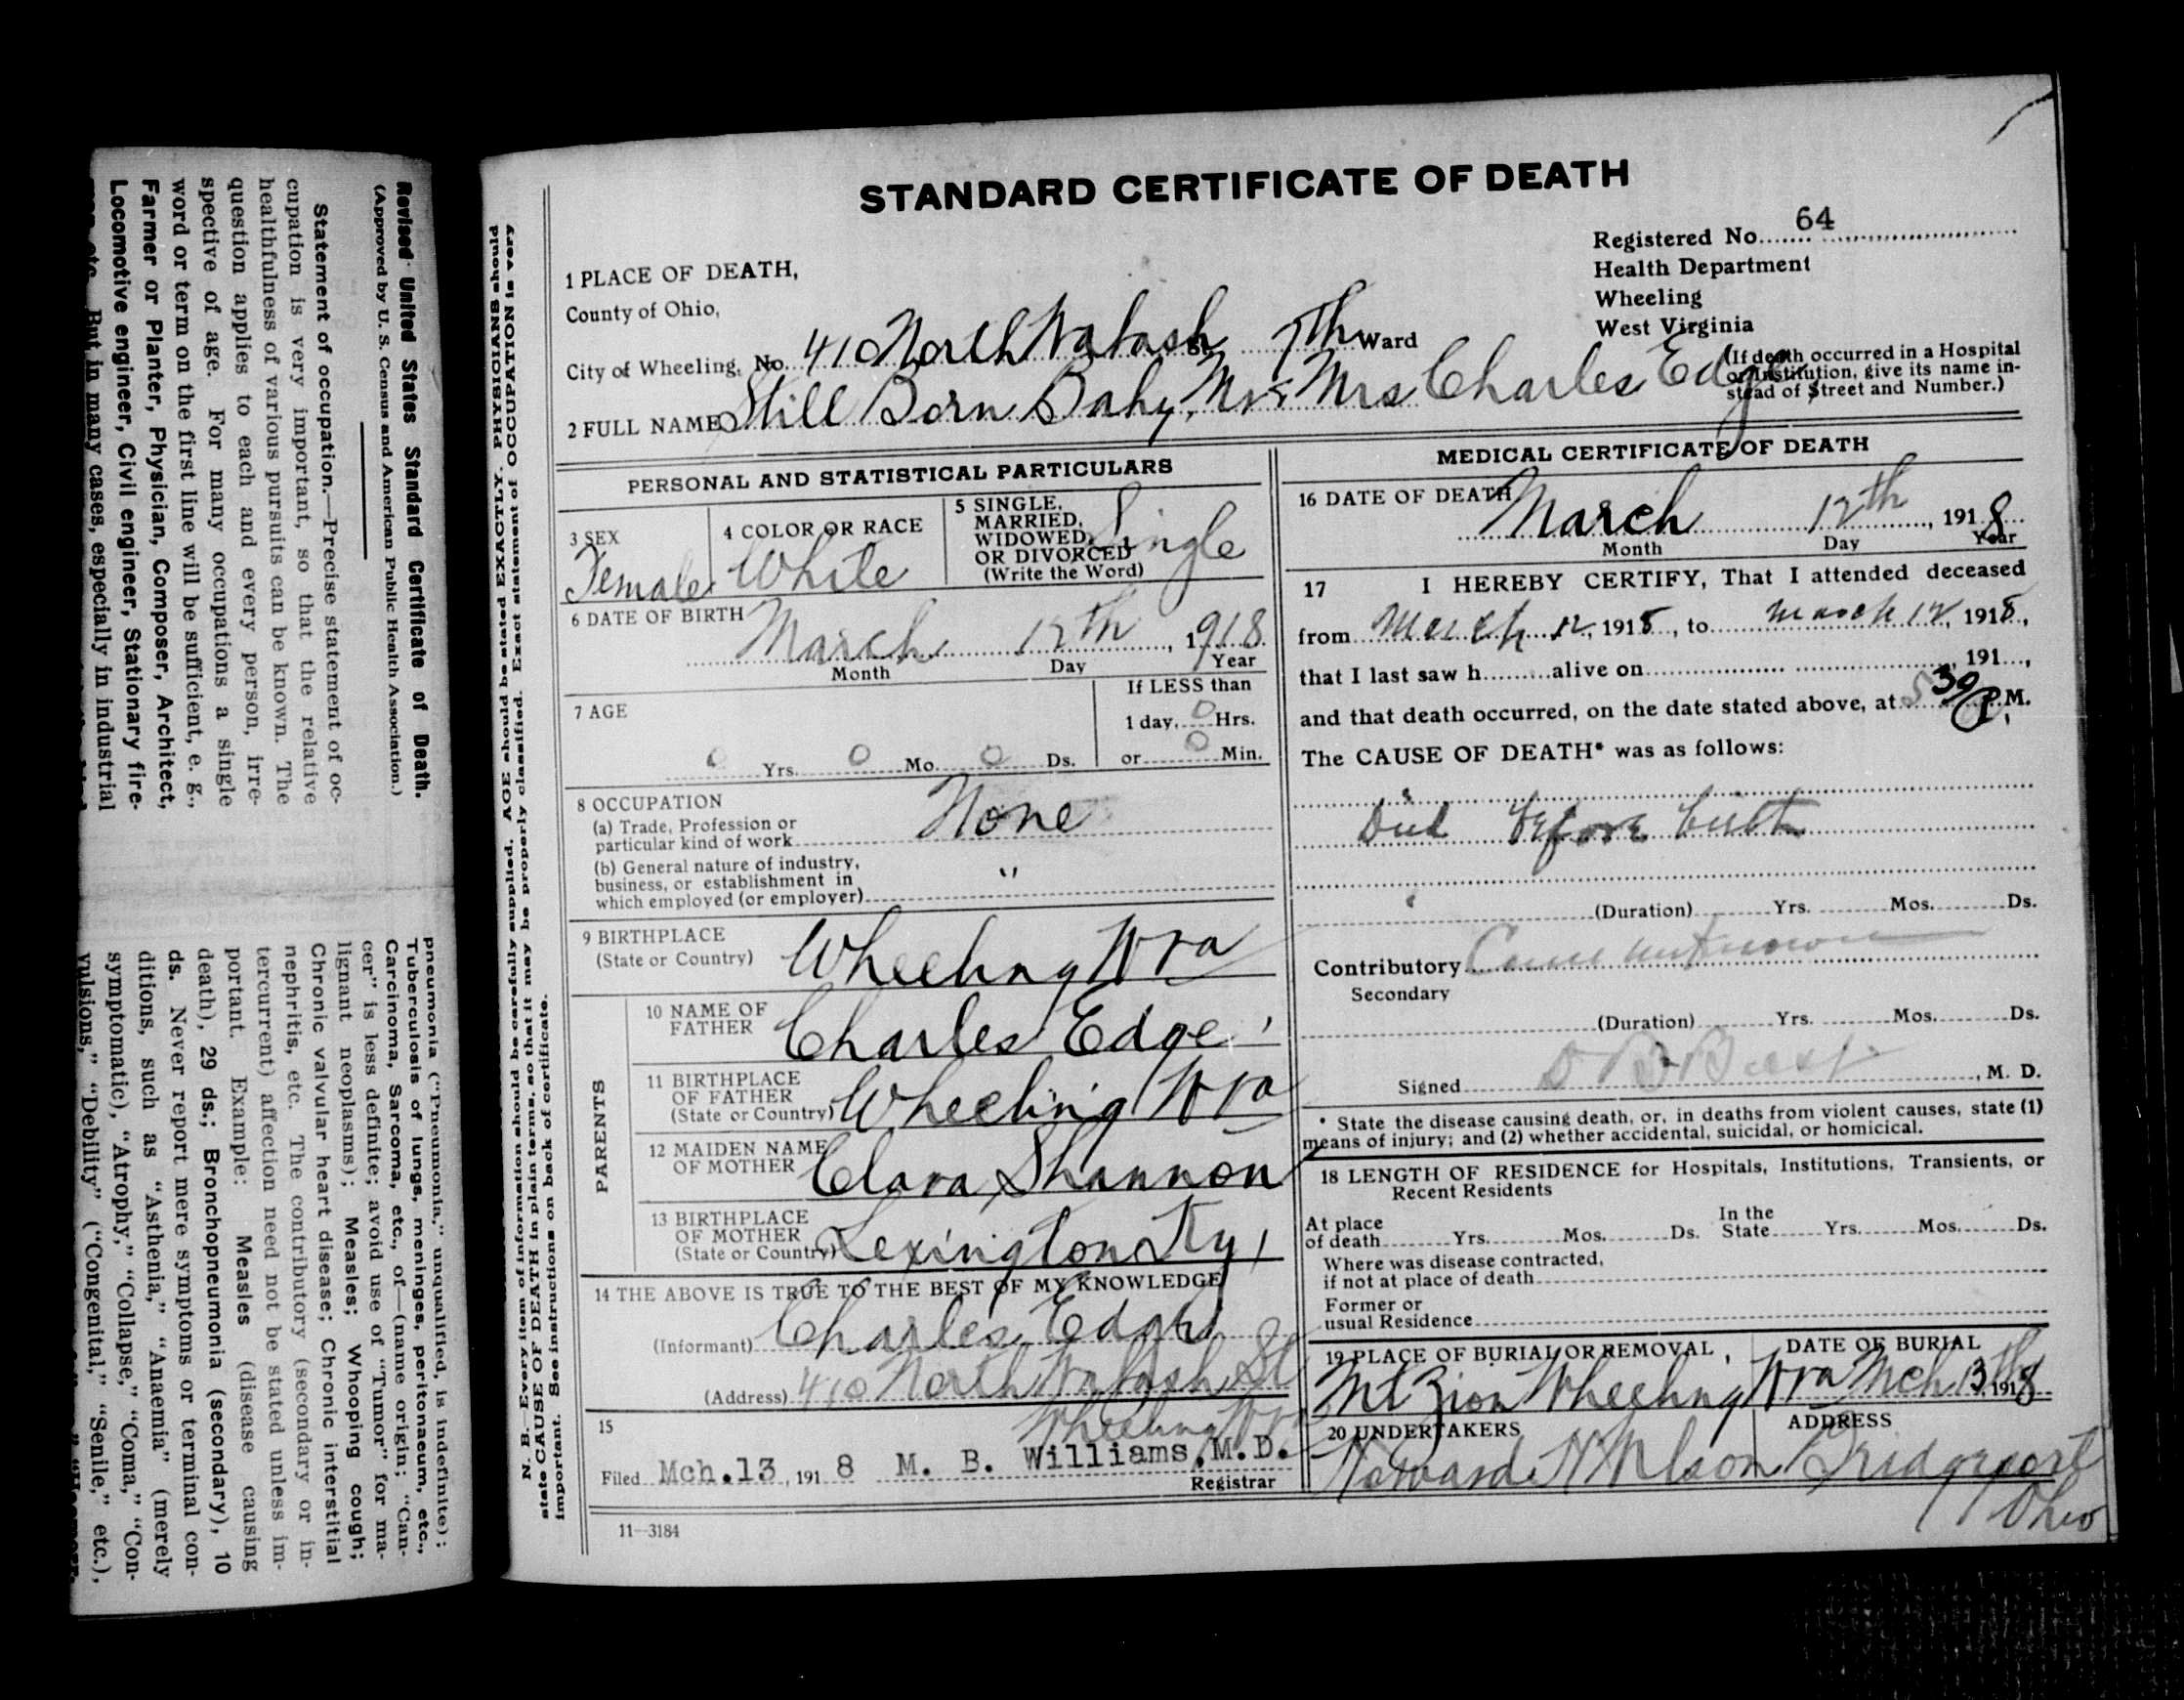 STANDARD CERTIFICATE OF DEATH
Registered No. 64
Health Department
Wheeling
West Virginia
(If death occurred in a Hospital
or Institution, give its name in-
stead of Street and Number.)
1 PLACE OF DEATH,
County of Ohio,
City of Wheeling, No. 410 North Wabash St. 7th Ward
2 FULL NAME Still Born Baby, Mr & Mrs Charles Edge
PERSONAL AND STATISTICAL PARTICULARS
3 SEX
Female
4 COLOR OR RACE
White
5 SINGLE,
MARRIED,
WIDOWED,
OR DIVORCED
(Write the Word)
Single
6 DATE OF BIRTH
March 12th, 1918
Month Day Year
7 AGE
0 Yrs. 0 Mo. 0 Ds.
If LESS than
1 day, 0 Hrs.
or 0 Min.
8 OCCUPATION
(a) Trade, Profession or
particular kind of work None
(b) General nature of industry,
business, or establishment in
which employed (or employer) "
9 BIRTHPLACE
(State or Country) Wheeling W Va
PARENTS
10 NAME OF
FATHER Charles Edge
11 BIRTHPLACE
OF FATHER
(State or Country) Wheeling W Va
12 MAIDEN NAME
OF MOTHER Clara Shannon
13 BIRTHPLACE
OF MOTHER
(State or Country) Lexington Ky,
14 THE ABOVE IS TRUE TO THE BEST OF MY KNOWLEDGE
(Informant) Charles Edge
(Address) 410 North Wabash St
Wheeling W Va
15
Filed Mch. 13, 1918 M. B. Williams, M.D.
Registrar
11—3184
MEDICAL CERTIFICATE OF DEATH
16 DATE OF DEATH
March 12th, 1918
Month Day Year
17 I HEREBY CERTIFY, That I attended deceased
from March 12, 1918, to March 12, 1918,
that I last saw h alive on , 191 ,
and that death occurred, on the date stated above, at 5 30 P. M.
The CAUSE OF DEATH* was as follows:
Died before birth
(Duration) Yrs. Mos. Ds.
Contributory Cause unknown
Secondary
(Duration) Yrs. Mos. Ds.
Signed D B Best, M. D.
* State the disease causing death, or, in deaths from violent causes, state (1)
means of injury; and (2) whether accidental, suicidal, or homicical.
18 LENGTH OF RESIDENCE for Hospitals, Institutions, Transients, or
Recent Residents
At place
of death Yrs. Mos. Ds. In the
State Yrs. Mos. Ds.
Where was disease contracted,
if not at place of death
Former or
usual Residence
19 PLACE OF BURIAL OR REMOVAL, DATE OF BURIAL
Mt Zion Wheeling W Va Mch 13th 1918
20 UNDERTAKERS ADDRESS
Howard Nelson Bridgeport
Ohio
N. B.—Every item of information should be carefully supplied. AGE should be stated EXACTLY. PHYSICIANS should
state CAUSE OF DEATH in plain terms, so that it may be properly classified. Exact statement of OCCUPATION is very
important. See instructions on back of certificate.
Revised United States Standard Certificate of Death.
(Approved by U. S. Census and American Public Health Association.)
Statement of occupation.—Precise statement of oc-
cupation is very important, so that the relative
healthfulness of various pursuits can be known. The
question applies to each and every person, irre-
spective of age. For many occupations a single
word or term on the first line will be sufficient, e. g.,
Farmer or Planter, Physician, Composer, Architect,
Locomotive engineer, Civil engineer, Stationary fire-
etc. But in many cases, especially in industrial
pneumonia ("Pneumonia," unqualified, is indefinite);
Tuberculosis of lungs, meninges, peritonaeum, etc.,
Carcinoma, Sarcoma, etc., of—(name origin; "Can-
cer" is less definite; avoid use of "Tumor" for ma-
lignant neoplasms); Measles; Whooping cough;
Chronic valvular heart disease; Chronic interstitial
nephritis, etc. The contributory (secondary or in-
tercurrent) affection need not be stated unless im-
portant. Example: Measles (disease causing
death), 29 ds.; Bronchopneumonia (secondary), 10
ds. Never report mere symptoms or terminal con-
ditions, such as "Asthenia," "Anaemia" (merely
symptomatic), "Atrophy," "Collapse," "Coma," "Con-
vulsions," "Debility" ("Congenital," "Senile," etc.),